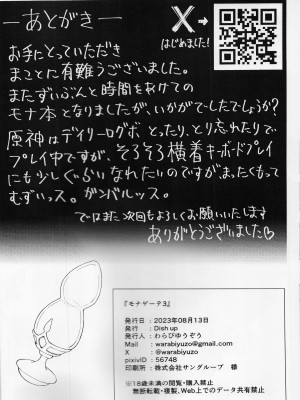 ―あとがき―
X→
はじめました!
お手にとっていただき
まことに有難うございました。
またずいぶんと時間をあけての
モナ本となりましたが、いかがでしたでしょうか?
原神はデイリーログボ とったり、とり忘れたりで
プレイ中ですが、そろそろ横着キーボードプレイ
にも少しぐらいなれたいのですがまったくもって
むずいっス。ガンバルッス。
ではまた次回もよろしくお願いいたします
ありがとうございました♡
『モナゲーテ3』
発行日:2023年08月13日
発行:Dish up
発行人:わらびゆうぞう
Mail:warabiyuzo@gmail.com
X:@warabiyuzo
pixivID:56748
印刷所:株式会社サングループ 様
※18歳未満の閲覧・購入禁止
無断転載・複製、Web上でのデータ共有禁止